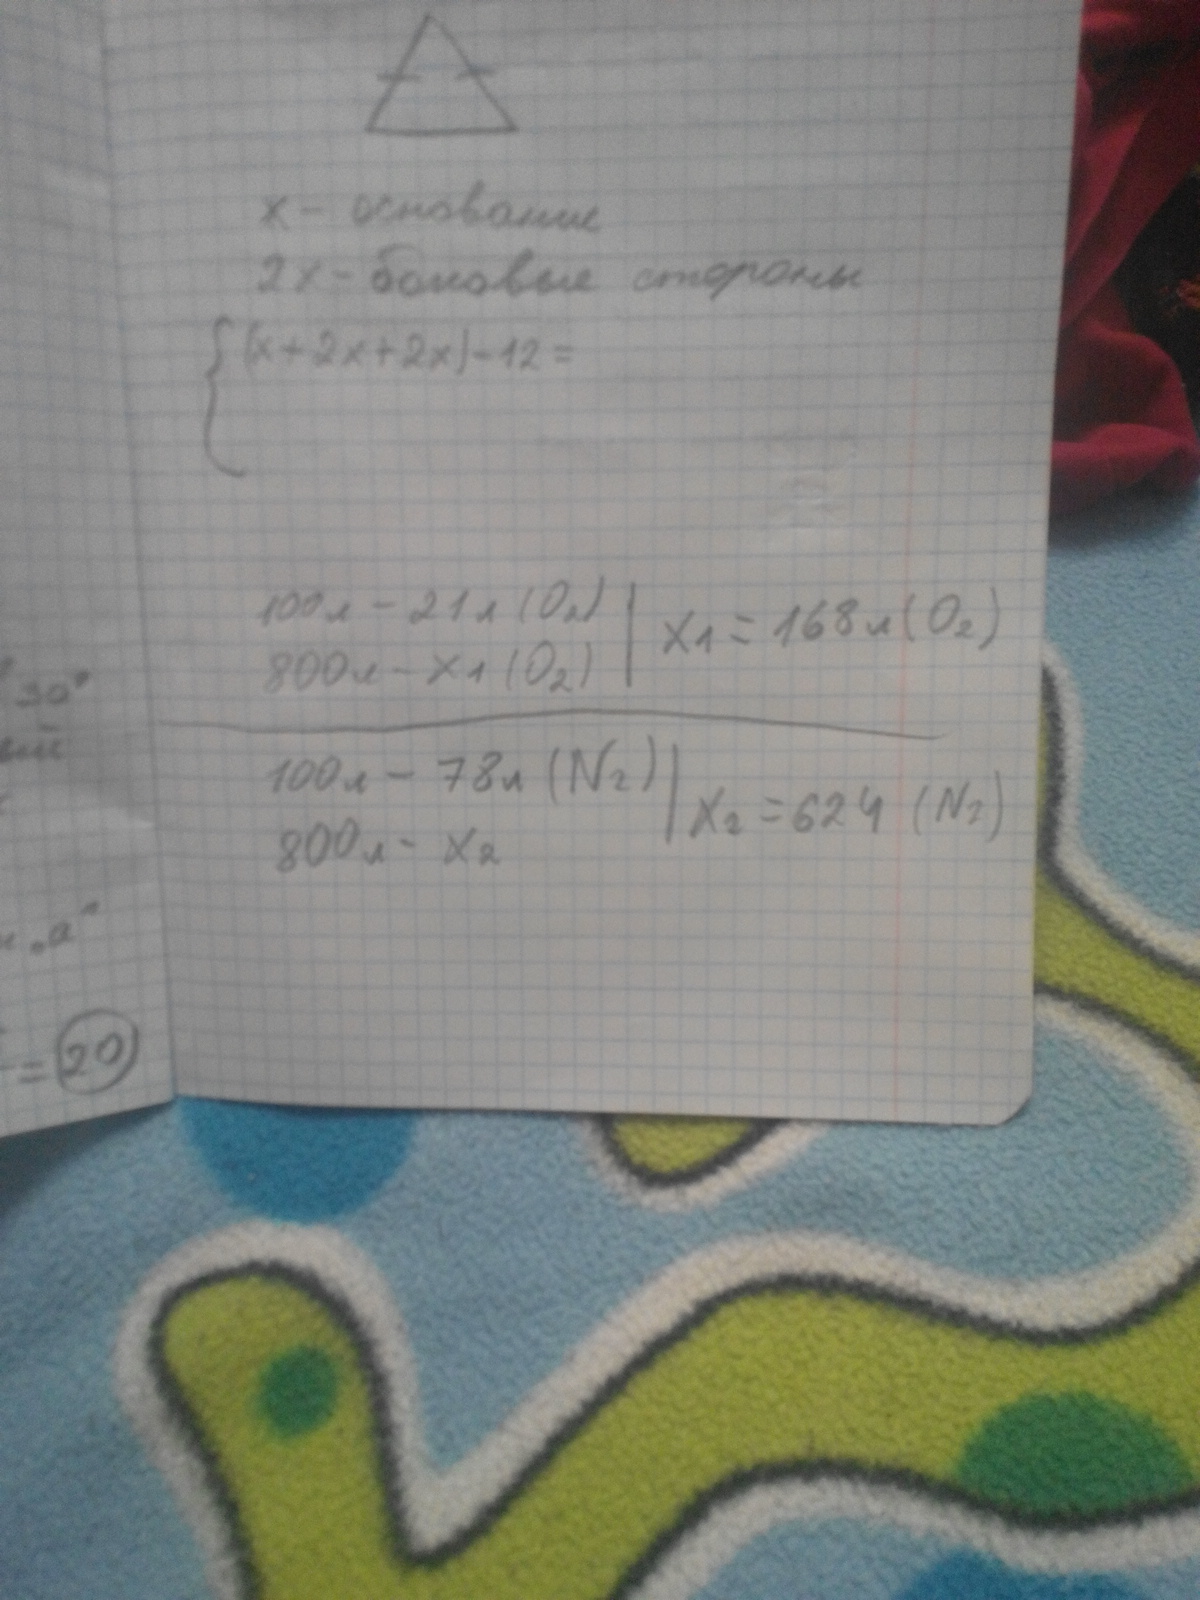 x - основание
2x - боковые стороны
(x+2x+2x)-12=
100л - 21л (O₂)
800л - x1 (O₂)
x1 = 168л (O₂)
100л - 78л (N₂)
800л - x₂
x₂ = 624 (N₂)
30°
„a“
= 20